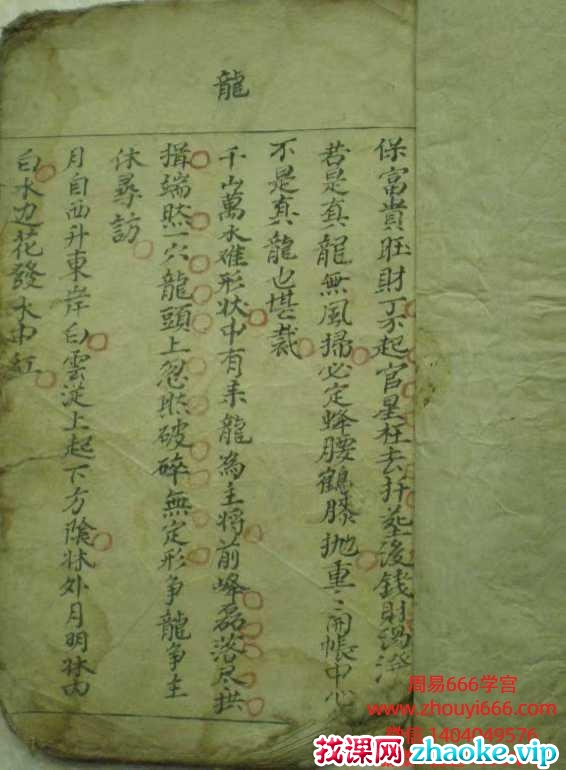 龍
保富貴旺財丁不起官星枉去扦塟後錢財湯
若是真龍無風掃必定蜂腰鶴膝抛重重開帳中心
不是真龍也堪裁
千山萬水难形狀中有来龍為主將前峰磊落尽拱
揖端然一穴龍頭上忽然破碎無定形争龍争主
休尋訪
月自西升東岸白雲淀上起下方陰林外月明林内
白水边花發水中紅
周易666学宫
www.zhouyi666.com
微信 1404049576
找课网 zhaoke.vip